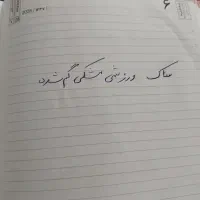 ساک ورزشی مشکی گم شده